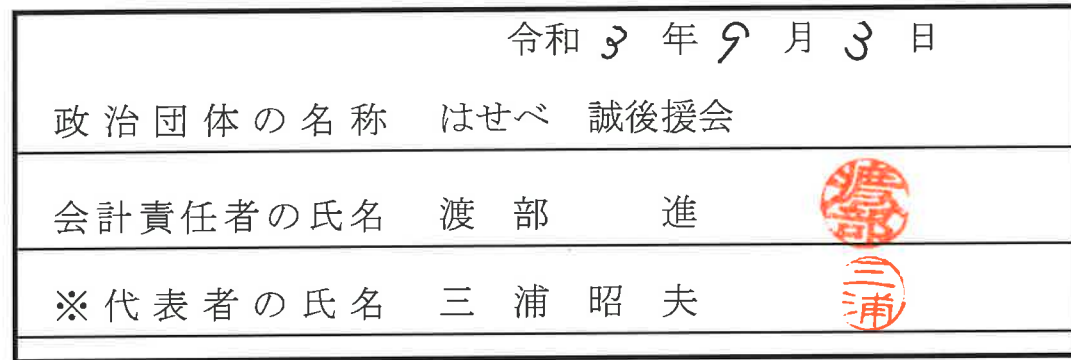 令和 3 年 9 月 3 日
政治団体の名称 はせべ 誠後援会
会計責任者の氏名 渡部 進 渡部
※代表者の氏名 三浦昭夫 三浦